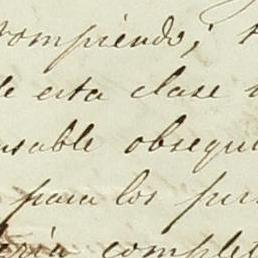 rompiendo;
de esta clase
nsable obsequi
para los per
tria complet